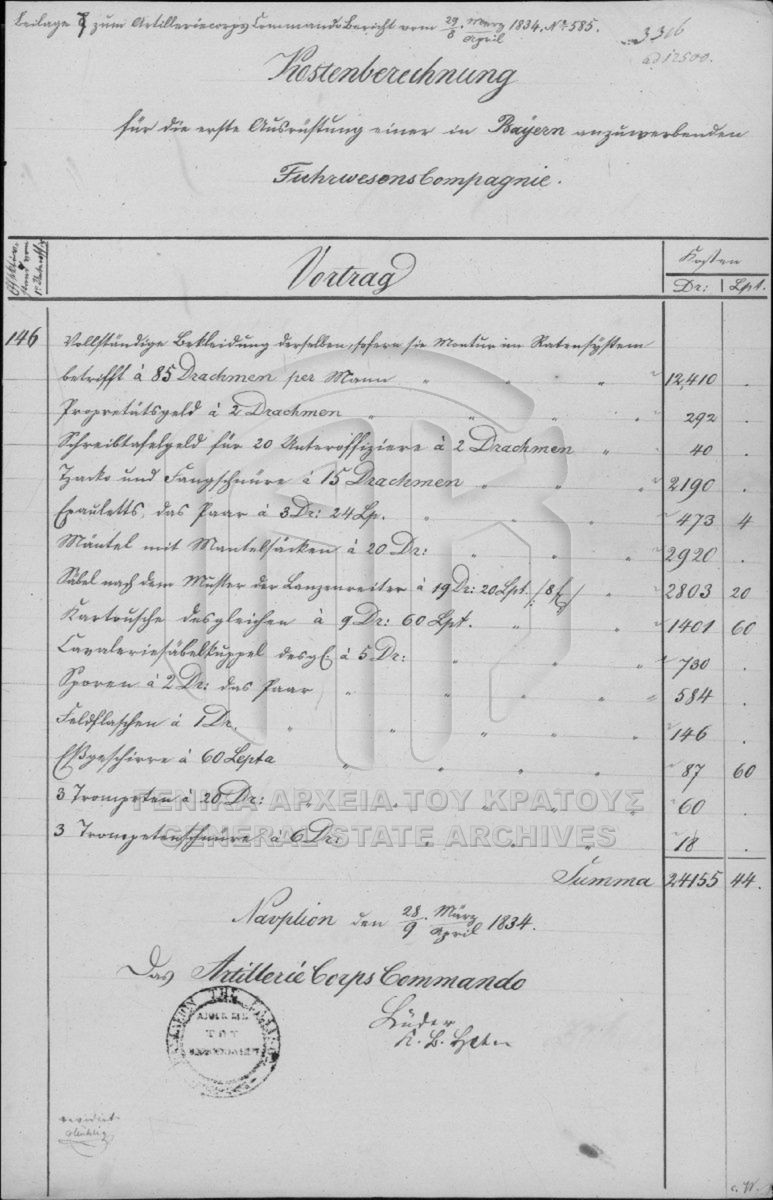 Beilage zum Artilleriecorps Commando Bericht vom 29/8 März/April 1834, No 585.
3306
ad 12500.
Kostenberechnung
für die erste Ausrüstung einer in Bayern anzuwerbenden
Fuhrwesens Compagnie.
Vortrag
Kosten
Dr: Lpt.
146 Vollständige Bekleidung derselben, sofern sie Montur im Ratensystem
betrifft à 85 Drachmen per Mann " " " " 12,410 .
Propretätsgeld à 2 Drachmen " " " " 292 .
Schreibtafelgeld für 20 Unteroffiziere à 2 Drachmen " " 40 .
Tzacko und Fangschnüre à 15 Drachmen " " " 2190 .
Epauletts, das Paar à 3 Dr: 24 Lp. " " " " 473 4
Mäntel mit Mantelsäcken à 20 Dr: " " " " 2920 .
Säbel nach dem Muster der Lanzenreiter à 19 Dr: 20 Lpt. /: 8 f :/ " 2803 20
Kartousche desgleichen à 9 Dr: 60 Lpt. " " " 1401 60
Cavaleriesäbelkuppel desgl: à 5 Dr: " " " " 730 .
Sporen à 2 Dr: das Paar " " " " 584 .
Feldflaschen à 1 Dr. " " " " " 146 .
Eßgeschirre à 60 Lepta " " " " 87 60
3 Trompeten à 20 Dr: " " " " 60 .
3 Trompetenschnüre à 6 Dr: " " " 18 .
Summa 24155 44.
Navplion den 28/9 März/April 1834.
Das Artillerie Corps Commando
Lüder
K. B. Hptm
revidirt
ΓΕΝΙΚΑ ΑΡΧΕΙΑ ΤΟΥ ΚΡΑΤΟΥΣ
GENERAL STATE ARCHIVES